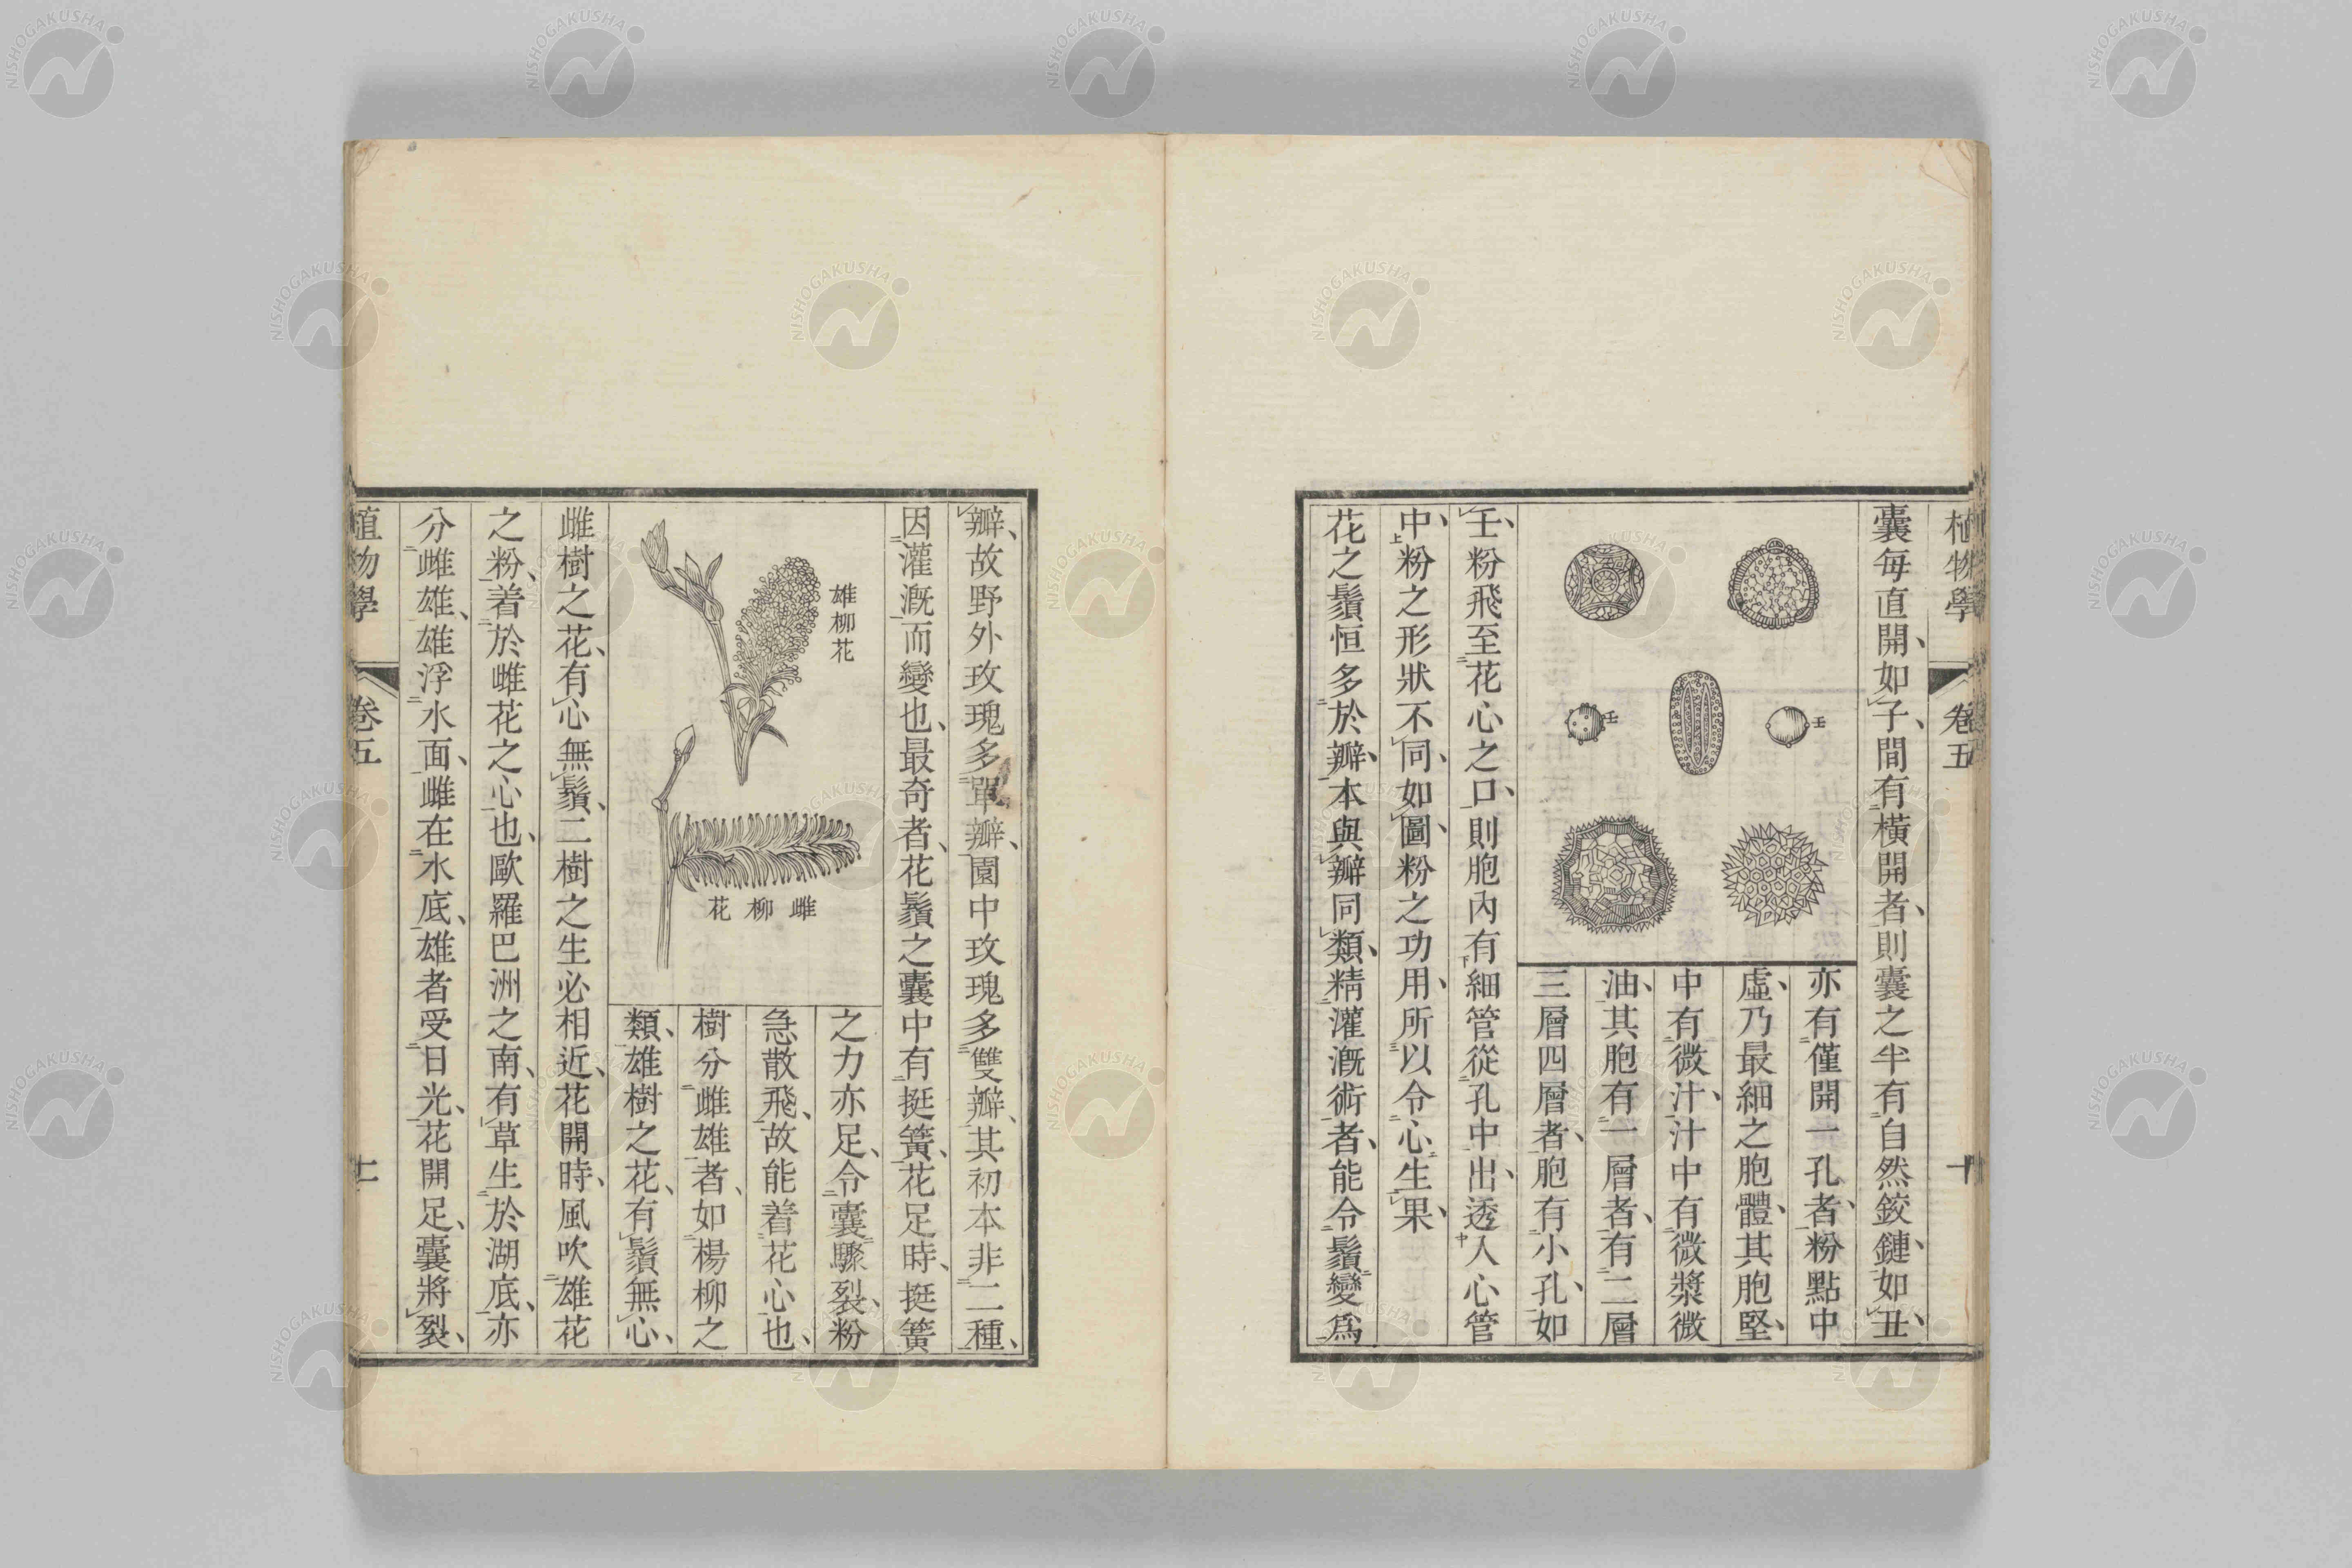 植物學 卷五 十
囊每直開、如子、間有橫開者、則囊之半有自然鉸鏈、如丑、
壬
壬
亦有僅開一孔者、粉點中
虛、乃最細之胞體、其胞堅、
中有微汁、汁中有微漿微
油、其胞有一層者、有二層
三層四層者、胞有小孔、如
壬、粉飛至花心之口、則胞內有細管從孔中出、透入心管
中、粉之形狀不同、如圖、粉之功用、所以令心生果、
花之鬚恒多於瓣、本與瓣同類、精灌漑術者、能令鬚變爲
瓣、故野外玫瑰多單瓣、園中玫瑰多雙瓣、其初本非二種、
因灌漑而變也、最奇者、花鬚之囊中有挺簧、花足時、挺簧
雄柳花
雌柳花
之力亦足、令囊驟裂、粉
急散飛、故能着花心也、
樹分雌雄者、如楊柳之
類、雄樹之花、有鬚無心、
雌樹之花、有心無鬚、二樹之生必相近、花開時、風吹雄花
之粉、着於雌花之心也、歐羅巴洲之南、有草生於湖底、亦
分雌雄、雄浮水面、雌在水底、雄者受日光、花開足、囊將裂、
植物學 卷五 十一
NISHOGAKUSHA